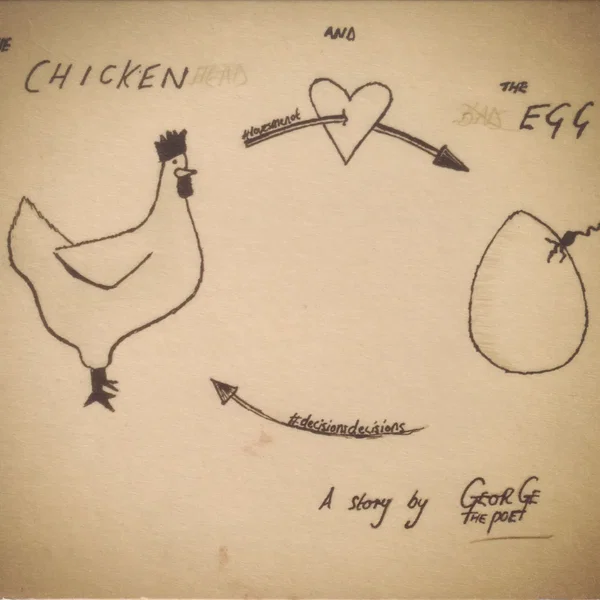 THE
CHICKENHEAD
AND
THE
BAD EGG
#lovesmenot
#decisionsdecisions
A story by GEORGE
THE POET